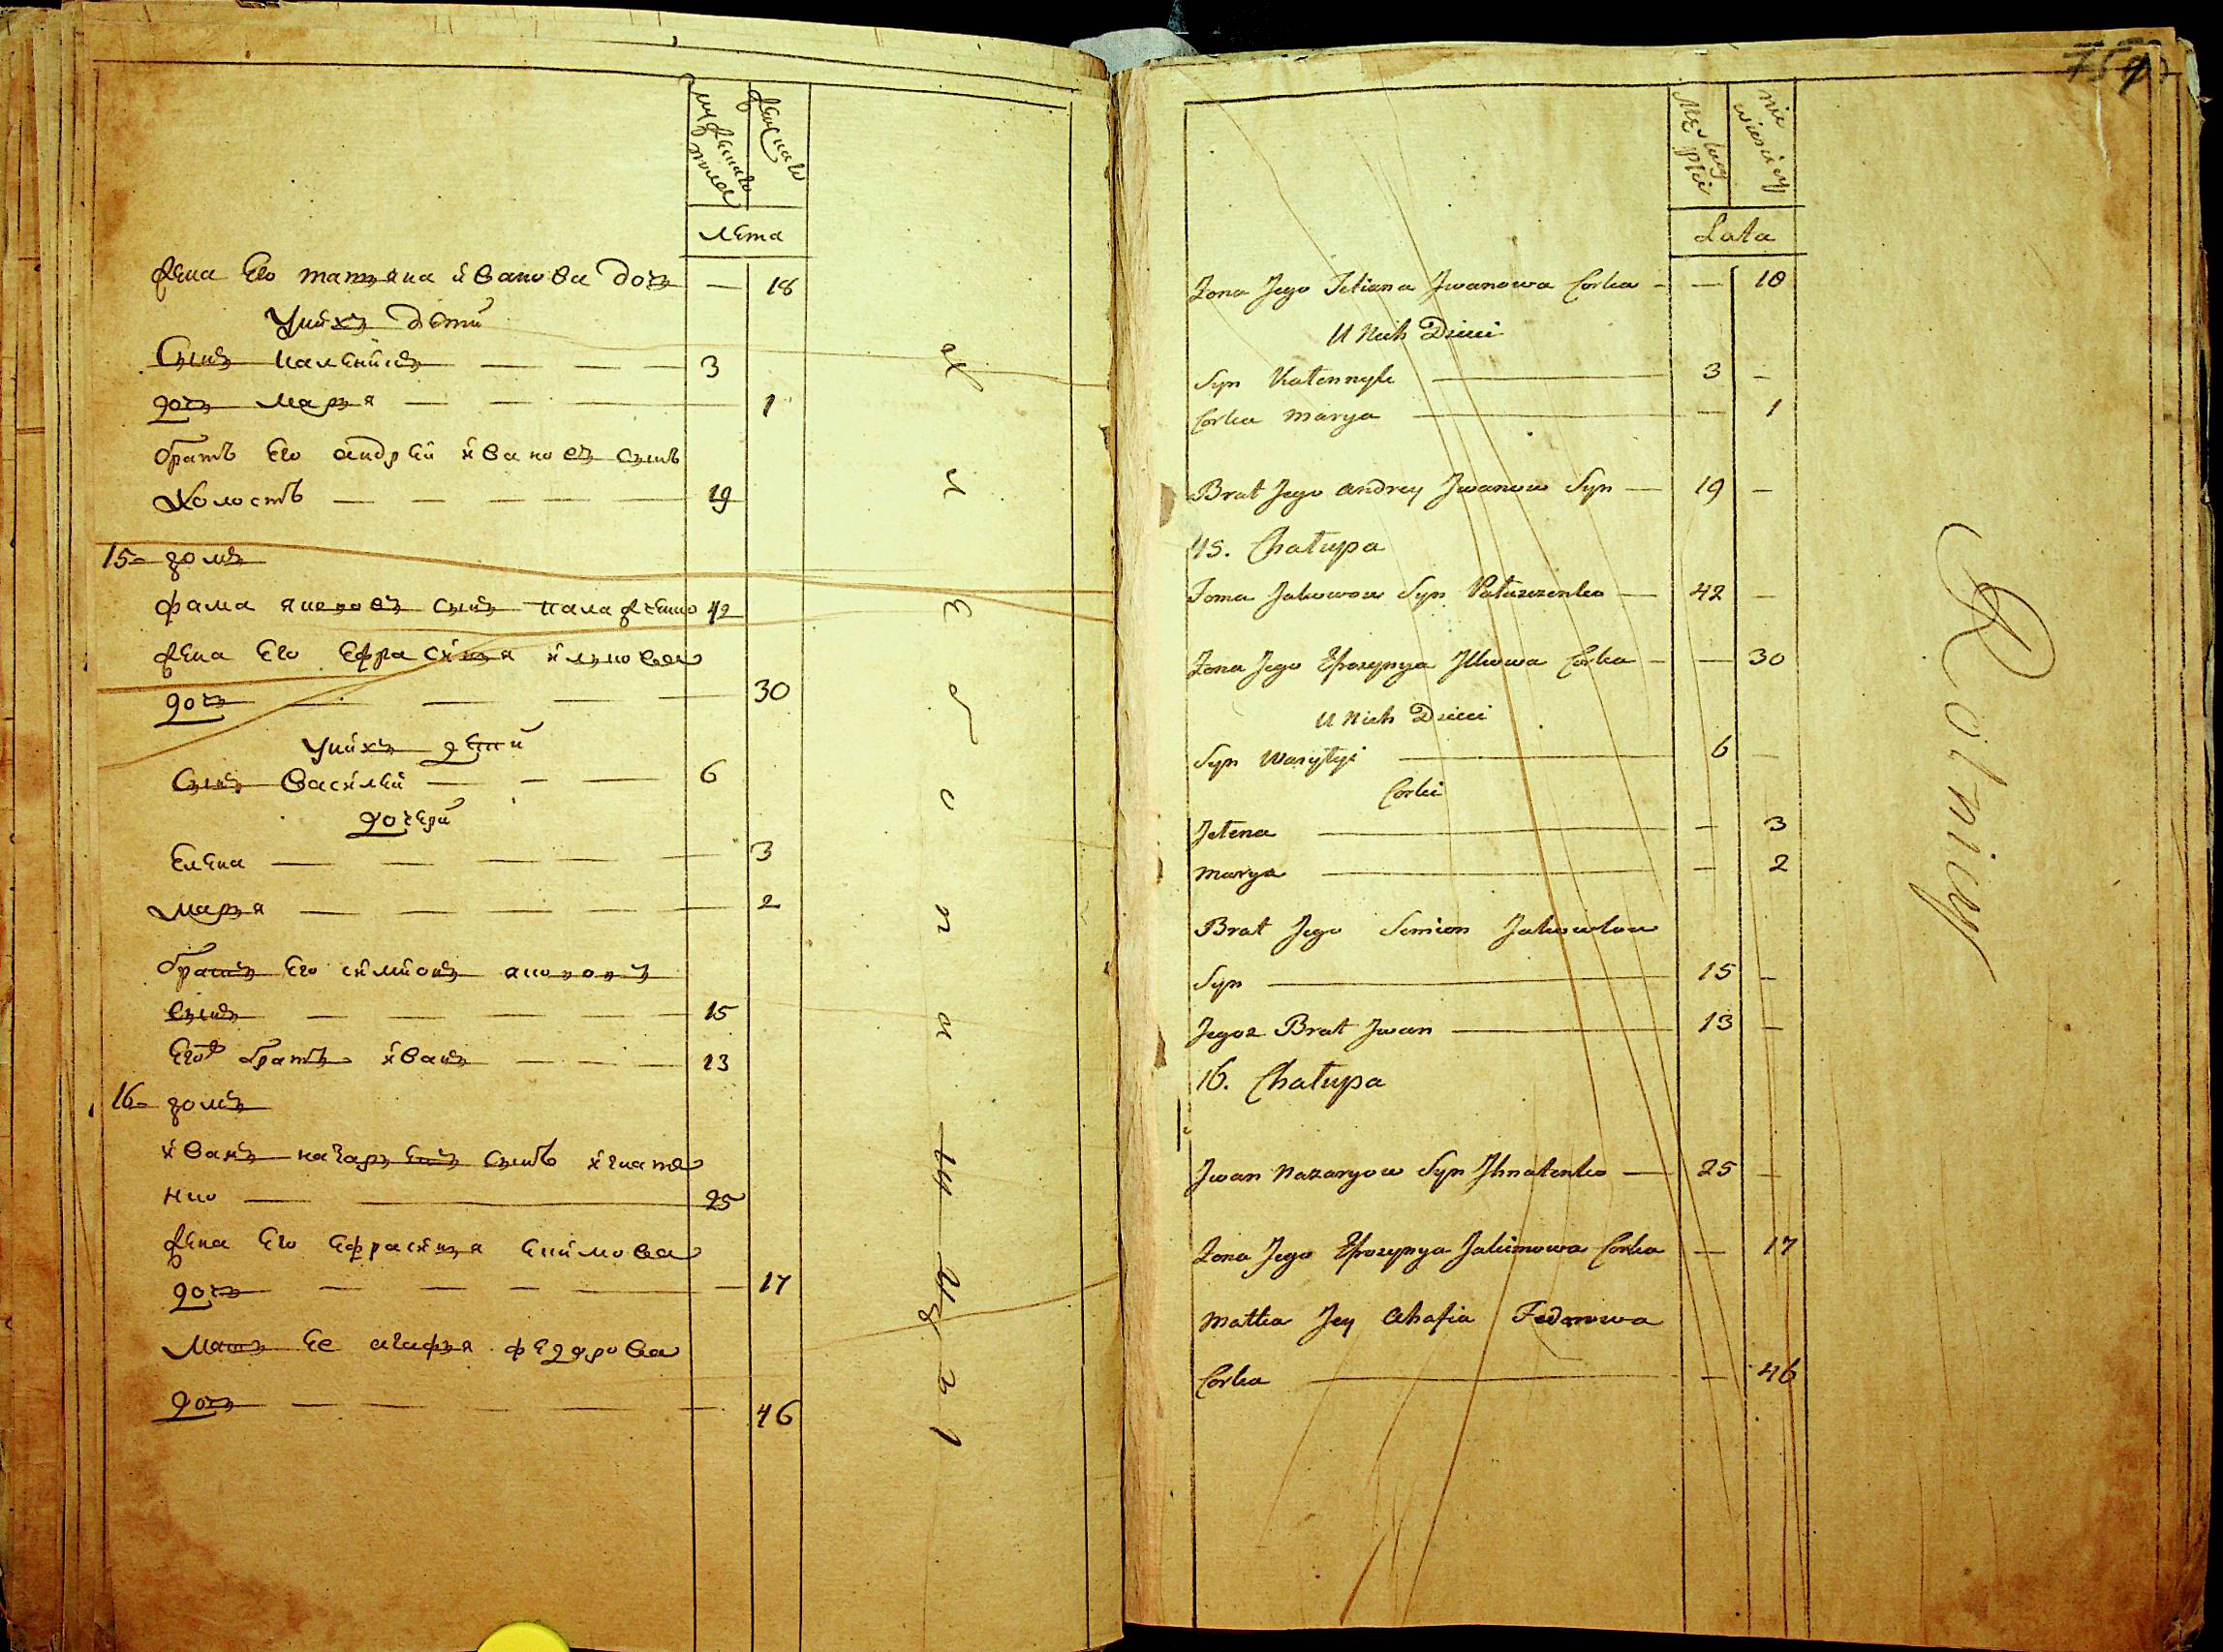 мужеска
пола
женска
лета
жена его татьяна иванова дочь — 18
У них дети
Сынъ каленикъ — 3
дочь марья — 1
братъ его андрей ивановъ сынъ
холостъ — 19
15 домъ
фама яковов сынъ палаженко 42
жена его ефрасиния илькова
дочь — 30
У них дети
Сынъ василей — 6
дочери
Елена — 3
марья — 2
братъ его симионъ яковов
сынъ — 15
Его ж братъ иванъ — 13
16 домъ
иванъ назарьевъ сынъ игнате
нко — 25
жена его ефрасиния екимова
дочь — 17
мать ее агафья федорова
дочь — 46
Męskey płci
niewieściey
Lata
Żona Jego Tetiana Jwanowa Corka — 18
U Nich Dzieci
Syn Kalennyk — 3 —
Corka Marya — 1
Brat Jego Andrey Jwanow Syn — 19 —
15. Chałupa
Foma Jakowow Syn Pałaszenko — 42 —
Żona Jego Efrozynya Jlkowa Corka — 30
U Nich Dzieci
Syn Wasylyi — 6 —
Corki
Jelena — 3
Marya — 2
Brat Jego Semion Jakowlow
Syn — 15 —
Jegoz Brat Jwan — 13 —
16. Chałupa
Jwan Nazaryow Syn Jhnatenko — 25 —
Żona Jego Efrozynya Jakimowa Corka — 17
Matka Jey Ahafia Fedorowa
Corka — 46
Rolnicy